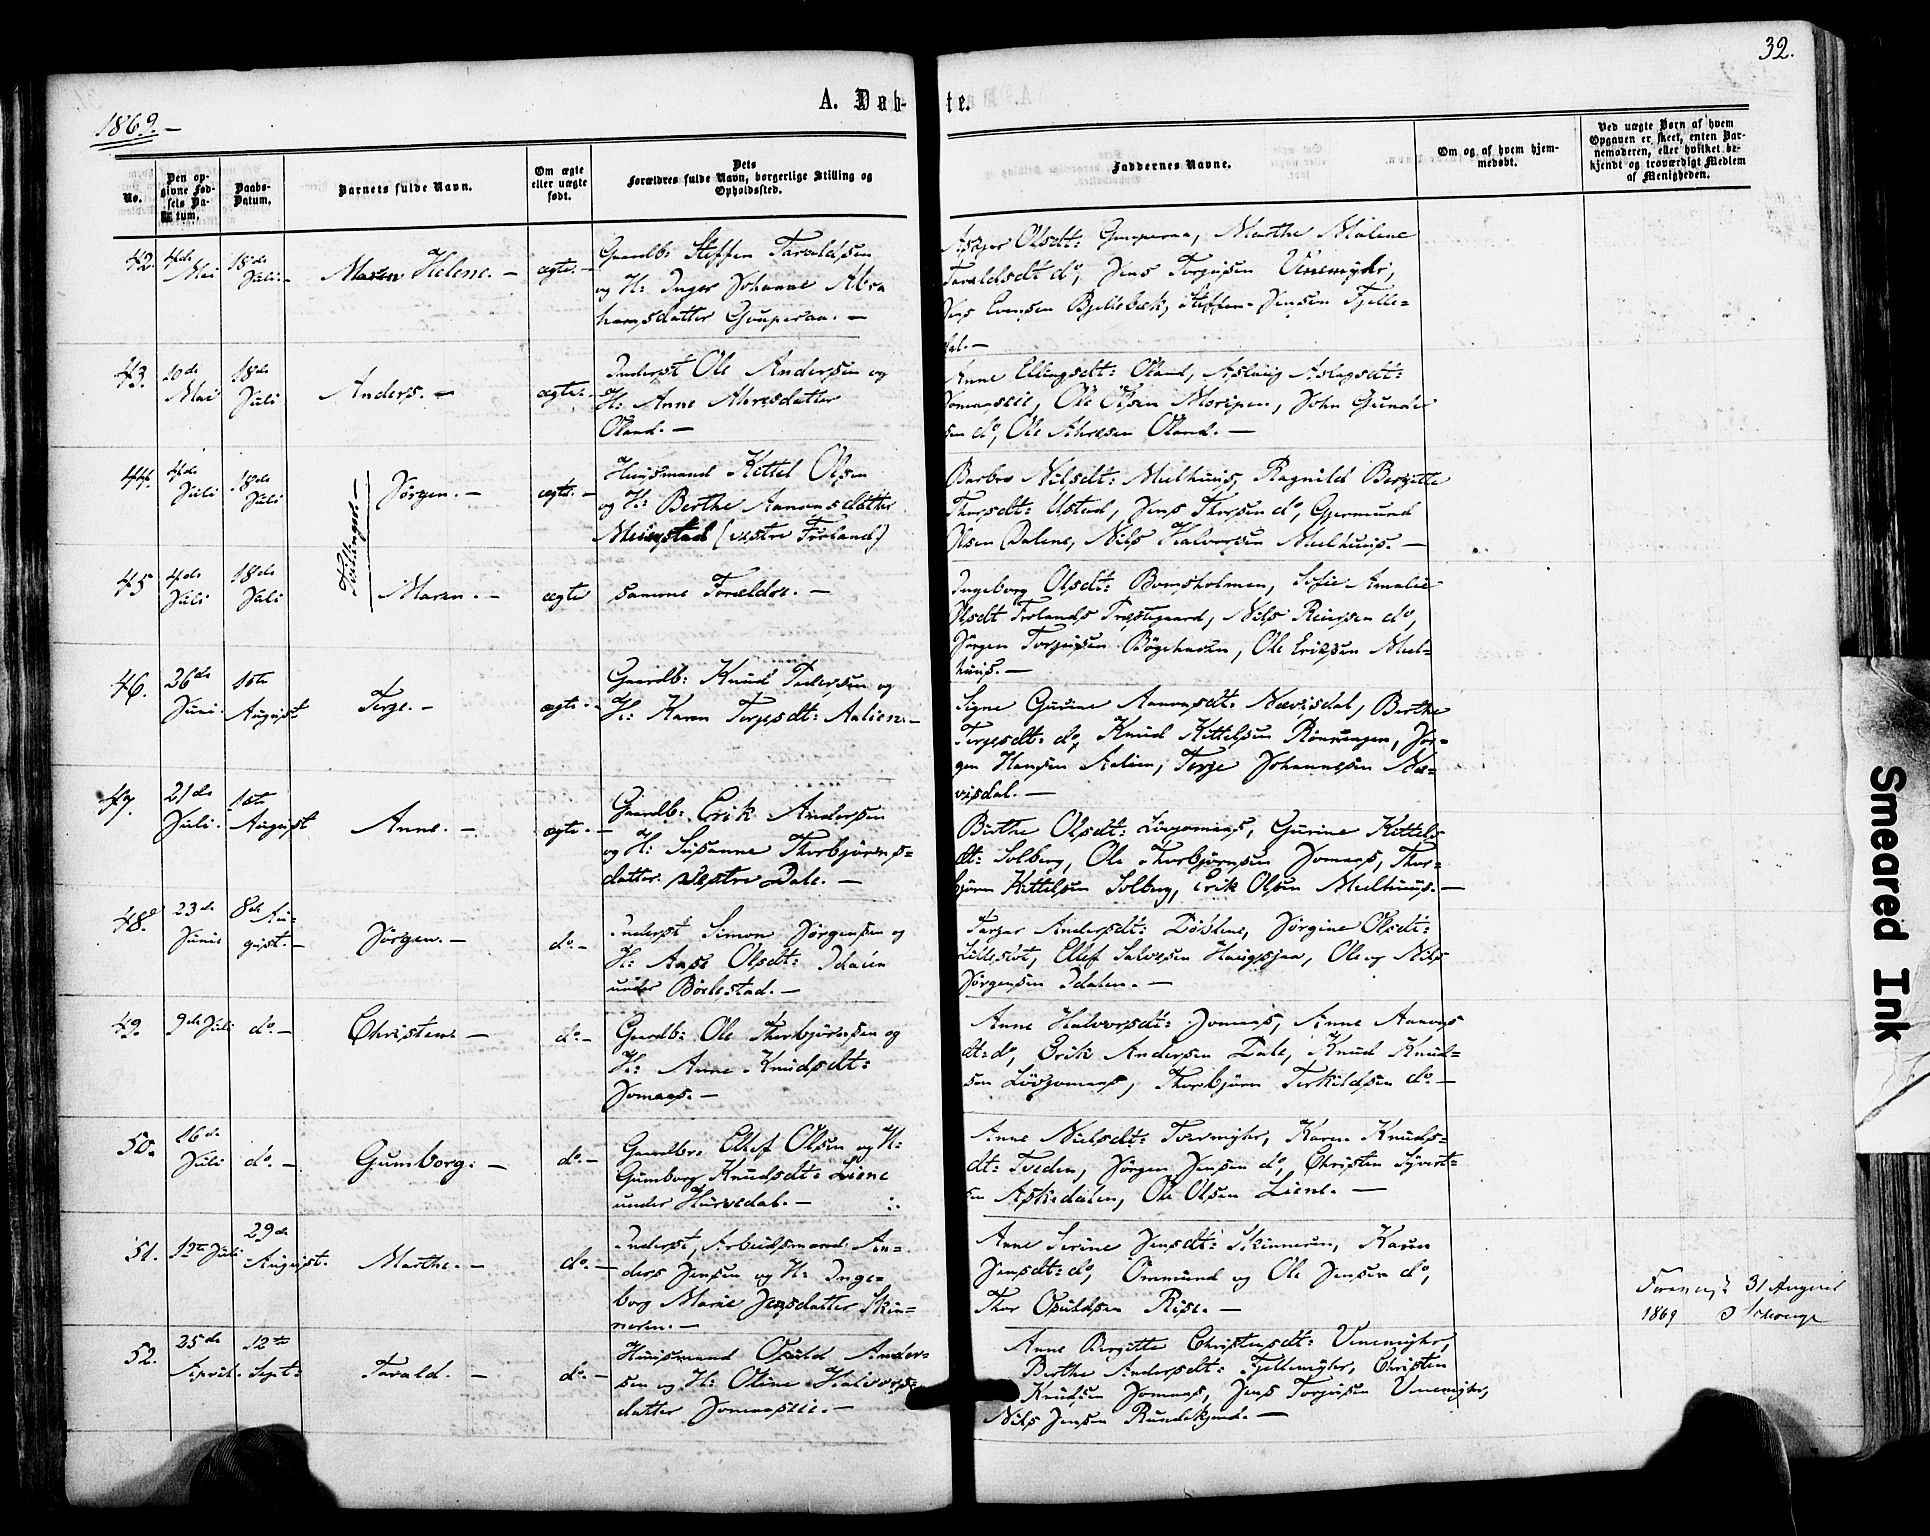 32.
A. Døb- te.
1869. -
No.
Den op-
givne Fød-
sels Da-
tum.
Daabs-
Datum.
Barnets fulde Navn.
Om ægte
eller uægte
født.
Dets
Forældres fulde Navn, borgerlige Stilling og
Opholdssted.
Faddernes Navne.
Om og af hvem hjem-
medøbt.
Ved uægte Børn af hvem
Opgaven er skeet, enten Bar-
nemoderen, eller hvilket be-
kjendt og troværdigt Medlem
af Menigheden.
42
4de
Mai
18de
Juli. -
Maren Helene. -
ægte. -
Gaardb: Steffen Taraldsen
og H: Inger Johanne Abra
hamsdatter -
Olsdt: Marthe Malene
Taraldsdt do, Jens Torjusen Venemyhr,
Jens Evensen Steffen Jensen Fjelle=
dal. -
43.
20de
Mai
18de
Juli
Anders. -
ægte. -
Inderst Ole Andersen og
H: Anne
Oland. -
Anne Ellingsdt: Oland, Aslaug Aslagsdt:
Ole Olsen John
sen do, Ole Oland. -
44.
4de
Juli
18de
Juli
Tvillinger -
Jørgen. -
ægte. -
Huusmand Kittel Olsen
og H: Berthe Aanonsdatter
(vestre Froland)
Barbro Nilsdt: Mulhuus, Ragnild Bergitte
Thorsdt: Ustad, Jens Thorsen do, Gjermund
Olsen Dalene, Nils Halvorsen Mulhuus. -
45
4de
Juli
18de
Juli
Maren. -
ægte
samme Forældre. -
Ingeborg Olsdt: Bomsholmen, Sofie Amalie
Olsdt Frolands Præstegaard, Nils do,
Jørgen Torjusen Bøgehaven, Ole Eriksen Mul-
huus. -
46.
26de
Juni.
1ste
August
Terje. -
ægte. -
Gaardb: Knud Pedersen og
H: Karen Terjesdt: Aalien. -
Signe Gurine Aanonsdt: Nævisdal, Berthe
Terjesdt: do, Knud Kittelsen Rønningen, Jør-
gen Hansen Aalien, Terje Johannesen Næ-
visdal. -
47.
21de
Juli.
1ste
August
Anne. -
ægte. -
Gaardb: Erik Andersen
og H: Susanne Thorbjørns=
datter vestre Dale. -
Birthe Olsdt: Løvjomaas, Gurine Kittels
dt: Solberg, Ole Thorbjørnsen Jomaas, Thor-
bjørn Kittelsen Solberg, Erik Olsen Mulhuus. -
48.
23de
Juni
8de Au-
gust. -
Jørgen. -
do. -
Inderst Simon Jørgensen og
H: Aase Olsdt: Idalen
under Bøelestad. -
Andersdt: Jørgine Olsdt:
Ellef Salvesen Haugsjaa, Ole og Nils
Jørgensen Idalen. -
49.
9de Juli
do. -
Christene -
do. -
Gaardb: Ole Thorbjørnsen og
H: Anne Knudsdt:
Jomaas. -
Anne Halvorsdt: Jomaas, Anne Aanons
dt: do, Erik Andersen Dale, Knud Knud=
sen Løvjomaas, Thorbjørn Terkildsen do. -
50.
16de
Juli
do. -
Gumborg. -
do. -
Gaardbr: Ellef Olsen og H:
Gumborg Knudsdt: Liene
under Hurvedal. -
Anne Nielsdt: Tvermyhr, Karen Knuds=
dt: Tveden, Jørgen Jensen do, Christen Syvert=
sen Askedalen, Ole Olsen Liene. -
51.
12te Juli
29de
August.
Marthe. -
do. -
Inderst, Arbeidsmand An=
ders Jensen og H: Inge=
borg Marie Jensdatter Skin=
neren. -
Anne Serine Jensdt: Skinneren, Karen
Jensdt: do, Ommund og Ole Jensen do,
Thor Osuldsen Rise. -
31 August
1869
52.
25de
April.
12te
Sept:
Tarald. -
do. -
Huusmand Osuld Ander-
sen og H: Oline Halvors
datter -
Anne Bergitte Christensdt: Venemyhr,
Berthe Andersdt: Fjellemyhr, Christen
Knudsen Jomaas, Jens Torjusen Venemyhr,
Nils Jensen -
Smeared Ink